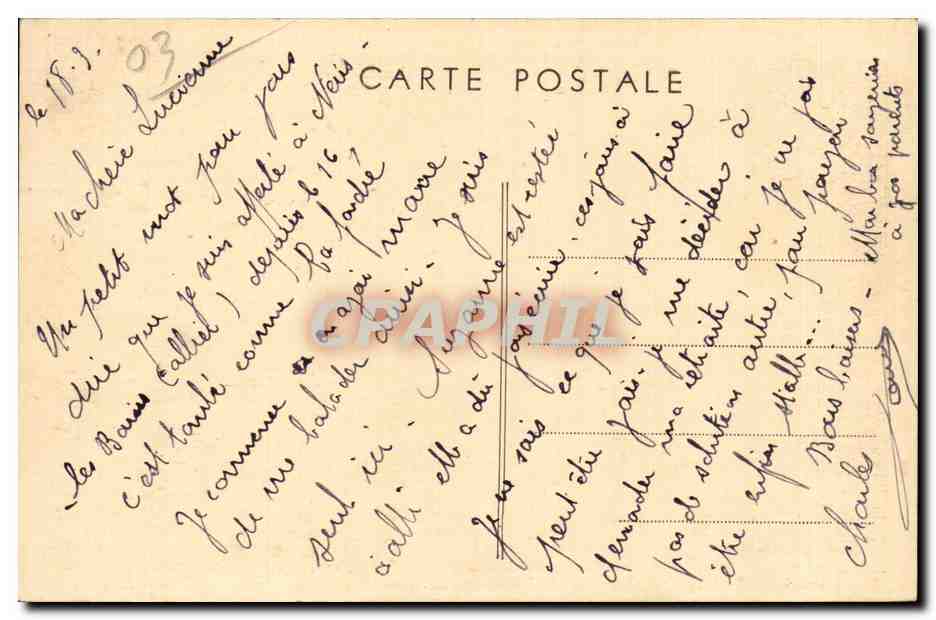 CARTE POSTALE
03
le 18.9.
Ma chérie Lucienne
Un petit mot pour vous
dire que je suis affecté à Néris-
-les Bains (Allier) depuis le 16
c'est tombé comme la foudre
Je commence à en avoir marre
de me balader ainsi. Je suis
seul ici. Suzanne est restée
à elle a dû
Je ne sais ce que je vais faire
peut être vais-je me décider à
demander ma retraite, car je ne vois
pas de solution autre, pour pouvoir
être enfin stable...
Bons baisers -
Charles
Meilleurs souvenirs
à vos parents
CPAPHIL